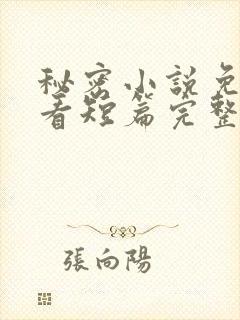 秘密小說免
看短篇完整
張向陽